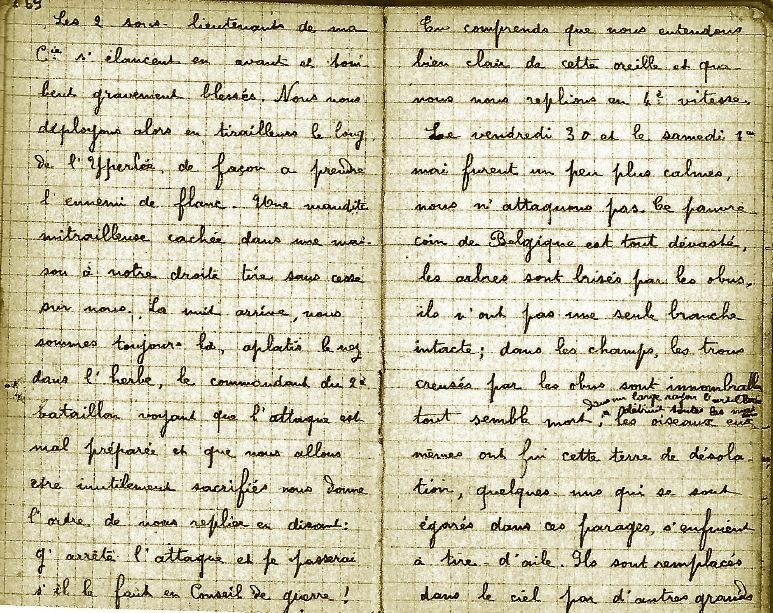 69
Les 2 sous-lieutenants de ma
Cie s'élancent en avant et tom-
bent gravement blessés. Nous nous
déployons alors en tirailleurs le long
de l'Yperlée, de façon a prendre
l'ennemi de flanc. Une maudite
mitrailleuse cachée dans une mai-
son à notre droite tire sans cesse
sur nous. La nuit arrive, nous
sommes toujours là, aplatis le nez
dans l'herbe, le commandant du 2e
bataillon voyant que l'attaque est
mal préparée et que nous allons
etre inutilement sacrifiés nous donne
l'ordre de nous replier en disant:
j'arrête l'attaque et je passerai
s'il le faut en Conseil de guerre!
Tu comprends que nous entendons
bien clair de cette oreille et que
nous nous replions en 4e vitesse.
Le vendredi 30 et le samedi 1er
mai furent un peu plus calmes,
nous n'attaquons pas. Ce pauvre
coin de Belgique est tout dévasté,
les arbres sont brisés par les obus,
ils n'ont pas une seule branche
intacte; dans les champs, les trous
creusés par les obus sont innombrables
dans un large rayon
détruit toutes les
tout semble mort; les oiseaux eux
mêmes ont fui cette terre de désola-
tion, quelques-uns qui se sont
égarés dans ces parages, s'enfuient
à tire-d'aile. Ils sont remplacés
dans le ciel par d'autres grands